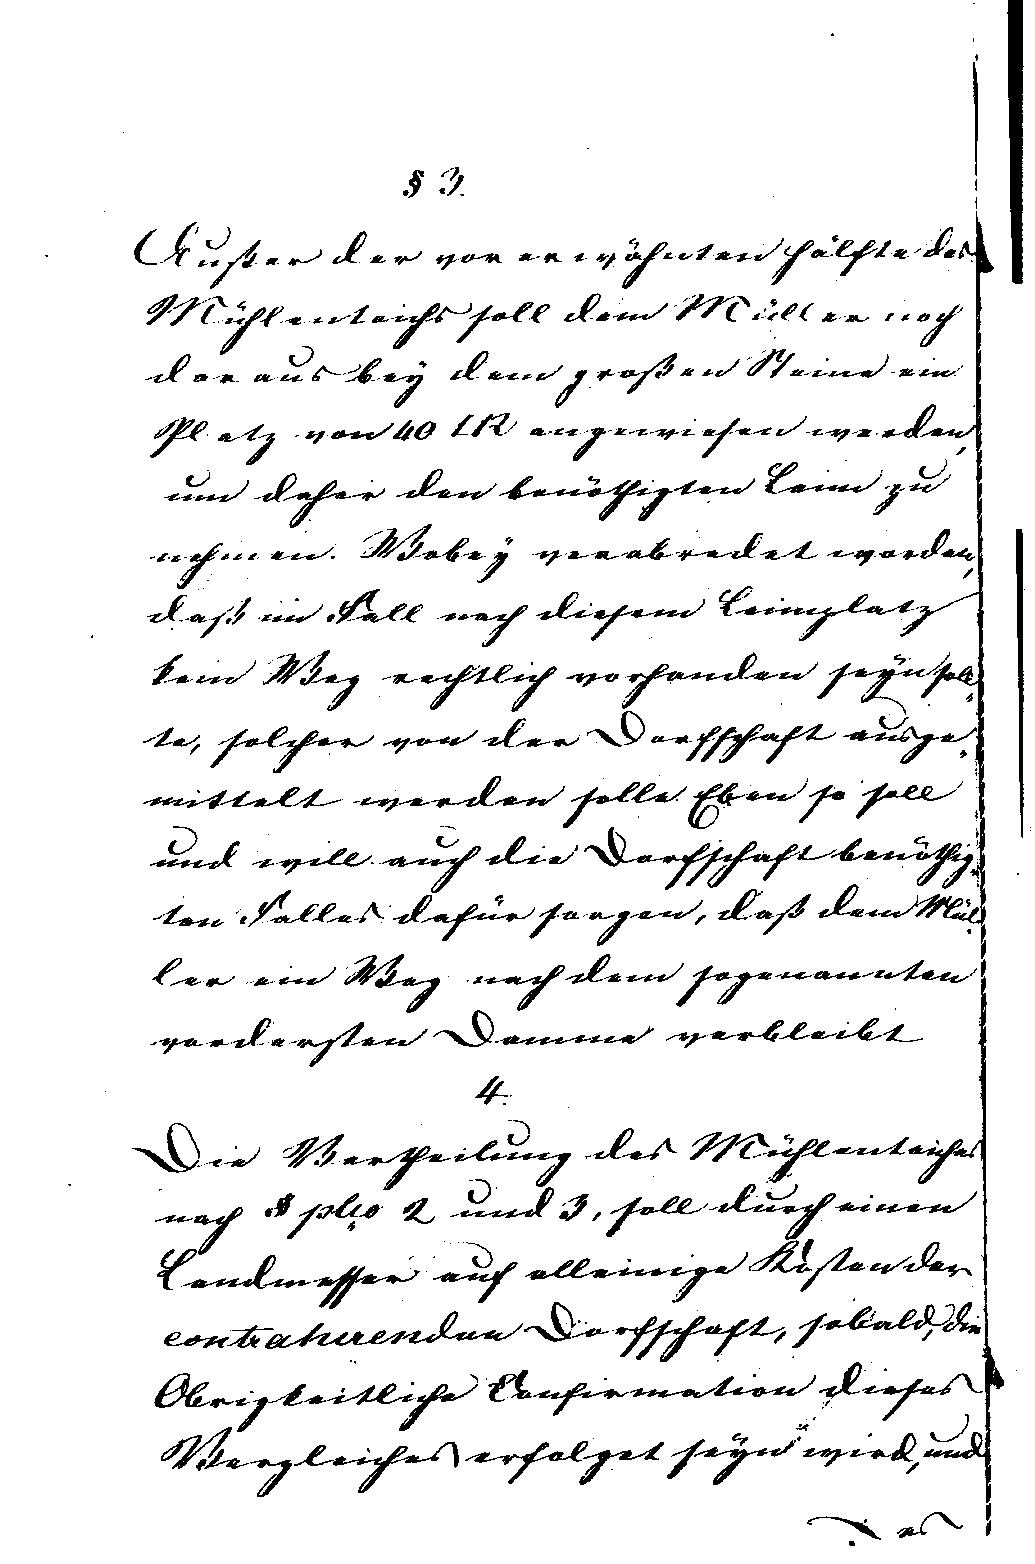 § 3.
Außer der vorerwähnten Hälfte des
Mühlenteichs soll dem Müller noch
daraus bey dem großen Steine ein
Platz von 40 angewiesen werden,
um daher den benöthigten Leim zu
nehmen. Wobey verabredet worden,
daß im Fall nach diesem Leimplatz
kein Weg rechtlich vorhanden seyn soll-
te, solcher von der Dorfschaft ausge-
mittelt werden solle. Eben so soll
und will auch die Dorfschaft benöthig-
ten Falles dafür sorgen, daß dem Mül-
ler ein Weg nach dem sogenannten
vordersten Damme verbleibt
4.
Die Vertheilung des Mühlenteiches
nach § 2 und 3, soll durch einen
Landmesser auf alleinige Kosten der
contrahirenden Dorfschaft, sobald, die
Obrigkeitliche Confirmation dieses
Vergleiches erfolget seyn wird, und
es